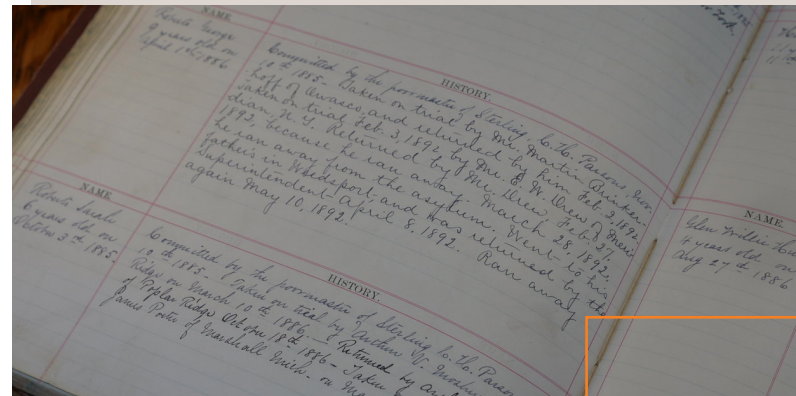 NAME.
Roberts George
9 years old on
April 1st 1886.
HISTORY.
Committed by the poormaster of Sterling, C. H. Parsons, Nov.
10th 1885. Taken on trial by Mr. Martin Brinker-
hoff of Owasco, and returned by him Feb. 2, 1892.
Taken on trial Feb. 3, 1892 by Mr. E. W. Drew of Meri-
dian, N.Y. Returned by Mr. Drew, Feb. 27,
1892, because he ran away. March 28, 1892,
he ran away from the asylum. Went to his
father's in Weedsport, and was returned by the
Superintendent April 8, 1892. Ran away
again May 10, 1892.
NAME.
Roberts Sarah
6 years old on
October 3rd 1885.
HISTORY.
Committed by the poormaster of Sterling C. H. Parsons
10th 1885. Taken on trial by
Ridge on March 10th 1886. Returned by
of Poplar Ridge October 18th 1886 - Taken
James Porter of Marshall Mich. on
NAME
Glen Willie
4 years old on
Aug 27th 1886